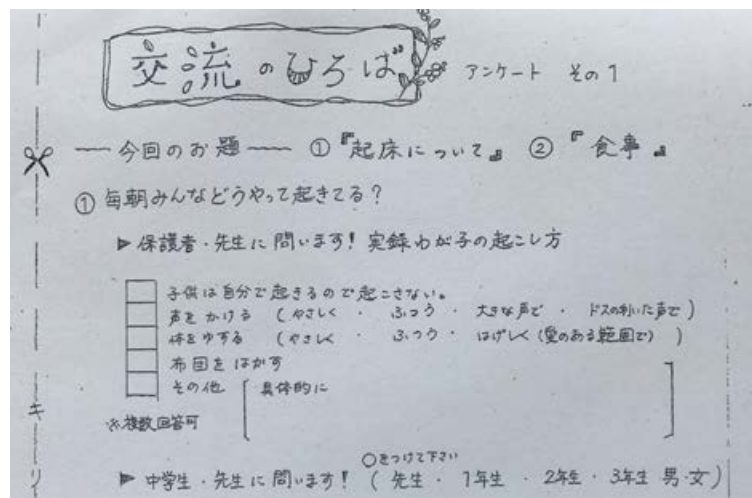 交流のひろば アンケート その1
今回のお題 ①『起床について』 ②『食事』
① 毎朝みんなどうやって起きてる?
▶ 保護者・先生に問います! 実録わが子の起こし方
子供は自分で起きるので起こさない。
声をかける (やさしく ・ ふつう ・ 大きな声で ・ ドスの利いた声で)
体をゆする (やさしく ・ ふつう ・ はげしく(愛のある範囲で) )
布団をはがす
その他 [具体的に ]
※複数回答可
○をつけて下さい
▶ 中学生・先生に問います! (先生・1年生・2年生・3年生 男・女)
キリ